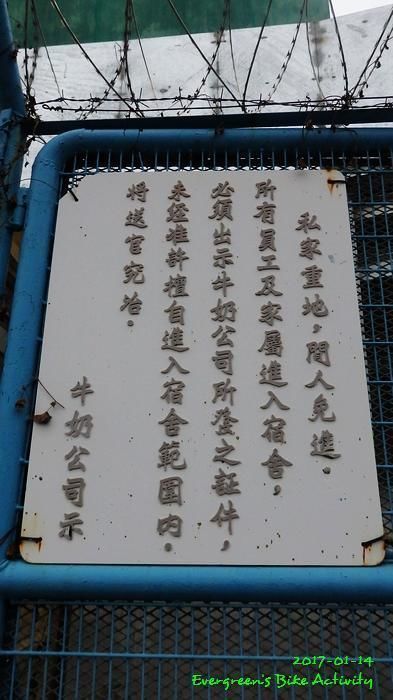 私家重地，閒人免進。
所有員工及家屬進入宿舍，
必須出示牛奶公司所發之証件，
未經准許擅自進入宿舍範圍内。
將送官究治。
牛奶公司示
2017-01-14
Evergreen's Bike Activity